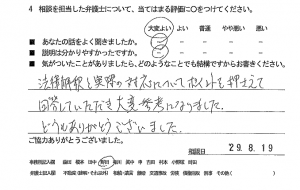 4 相談を担当した弁護士について、当てはまる評価に○をつけてください。
大変よい よい 普通 やや悪い 悪い
■ あなたの話をよく聞きましたか。
■ 説明は分かりやすかったですか。
■ 気がついたことがありましたら、どのようなことでも結構ですからお書きください。
法律解釈と実際の対応についてポイントを押さえて
回答していただき大変参考になりました。
どうもありがとうございました。
ご協力ありがとうございました。
相談日 29.8.19
事務所記入欄
弁護士記入欄